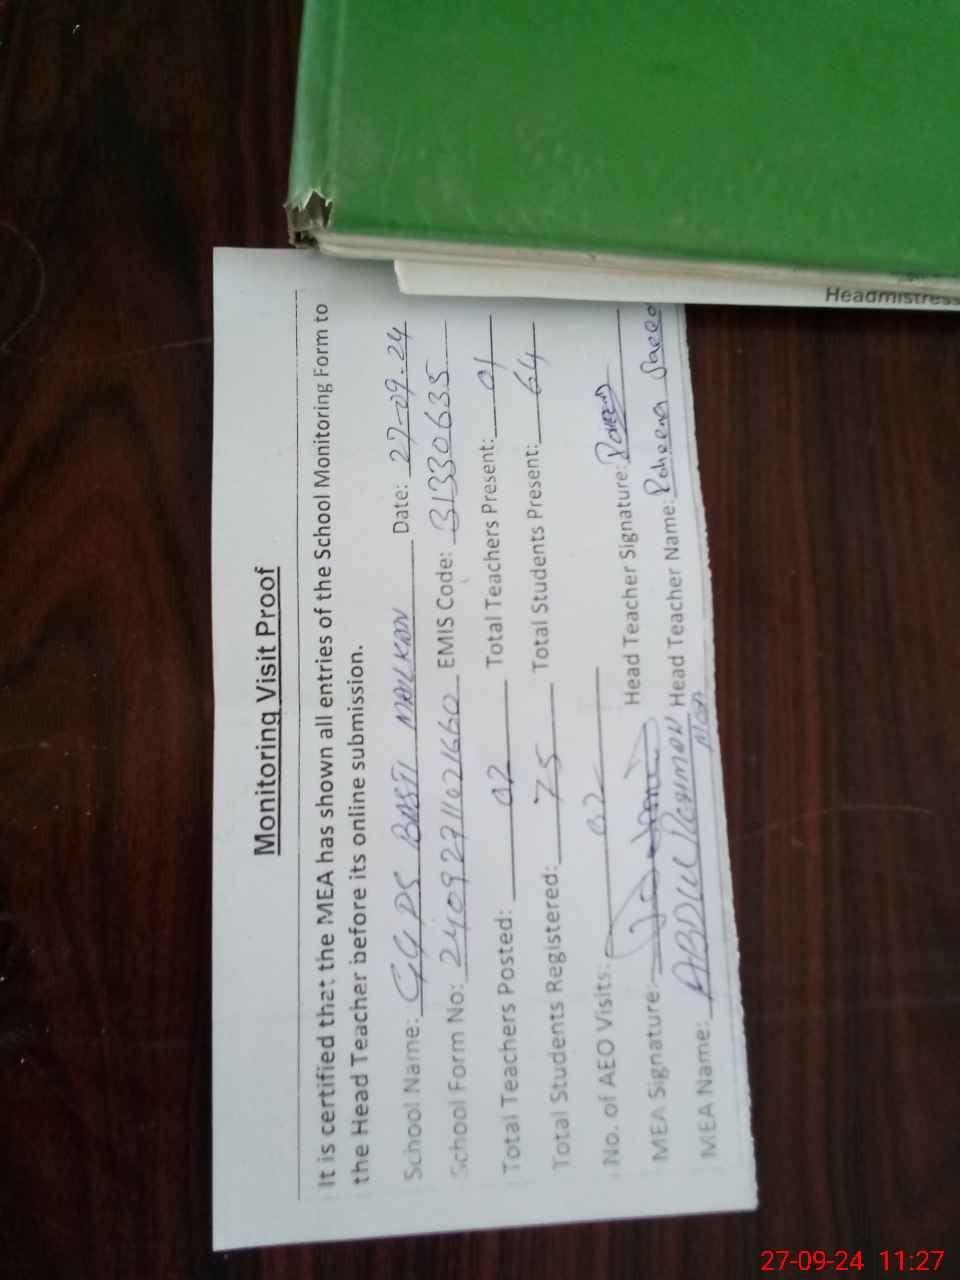 Monitoring Visit Proof
It is certified that the MEA has shown all entries of the School Monitoring Form to
the Head Teacher before its online submission.
School Name: GGPS BASTI MALKAN Date: 27-09-24
School Form No: EMIS Code: 31330635
Total Teachers Posted: 02 Total Teachers Present: 01
Total Students Registered: 75 Total Students Present: 64
No. of AEO Visits: 02
MEA Signature: Head Teacher Signature:
MEA Name: ABDUL Head Teacher Name:
Headmistress
27-09-24 11:27